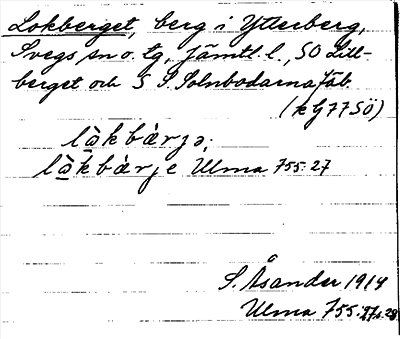 Lokberget, berg i Ytterberg,
Svegs sn o. tg. Jämtl. l., SO Lill-
berget och S S. Solnbodarna fäb.
(k G 77 SÖ)
là̱kbàrjə,
là̱kbàrje Ulma 755:27
S. Åsander 1914
Ulma 755:27 s. 28